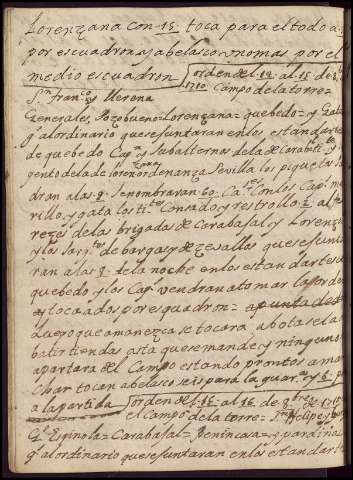 Lorenzana con = 15 = toca para el todo a
por escuadron y abelasco no mas por el
medio escuadron orden del 14 al 15 de
1710 Campo de la torre =
Sn Franco y Llerena
Generales Pozobueno = Lorenzana = quebedo = y
qal ordinario que se juntaran en los estandartes
de quebedo Capn y Subalternas de la de Carabajal
pento de la de Lorenzana Sevilla los piquetes
dran alas 8 Se nombraran 60 Caos Con los Cap
rillo, y gata los ttes Consado y restrollo 2 alfe
rezes de las brigadas de Carabajal y Lorenzana
y los sargtos de bargas y de Zesallas que se junta
ran alas 8 de la noche en los estandartes de
quebedo y los Capn vendran a tomar la orden
ay tocados por esquadron = a punta de dia
luego que amanezca se tocara a bota sela
batir tiendas asta que se mande y ninguno
apartara del Campo estando prontos a mar
char tocan a belasco seis para la guara y 6
a la partida orden del 15 al 16 de 8bre de 1710
el Campo de la torre = Sn Phelipe y
Gl Espinola = Carabajal = Benincasa = y
qal ordinario que se juntaran en los estandartes